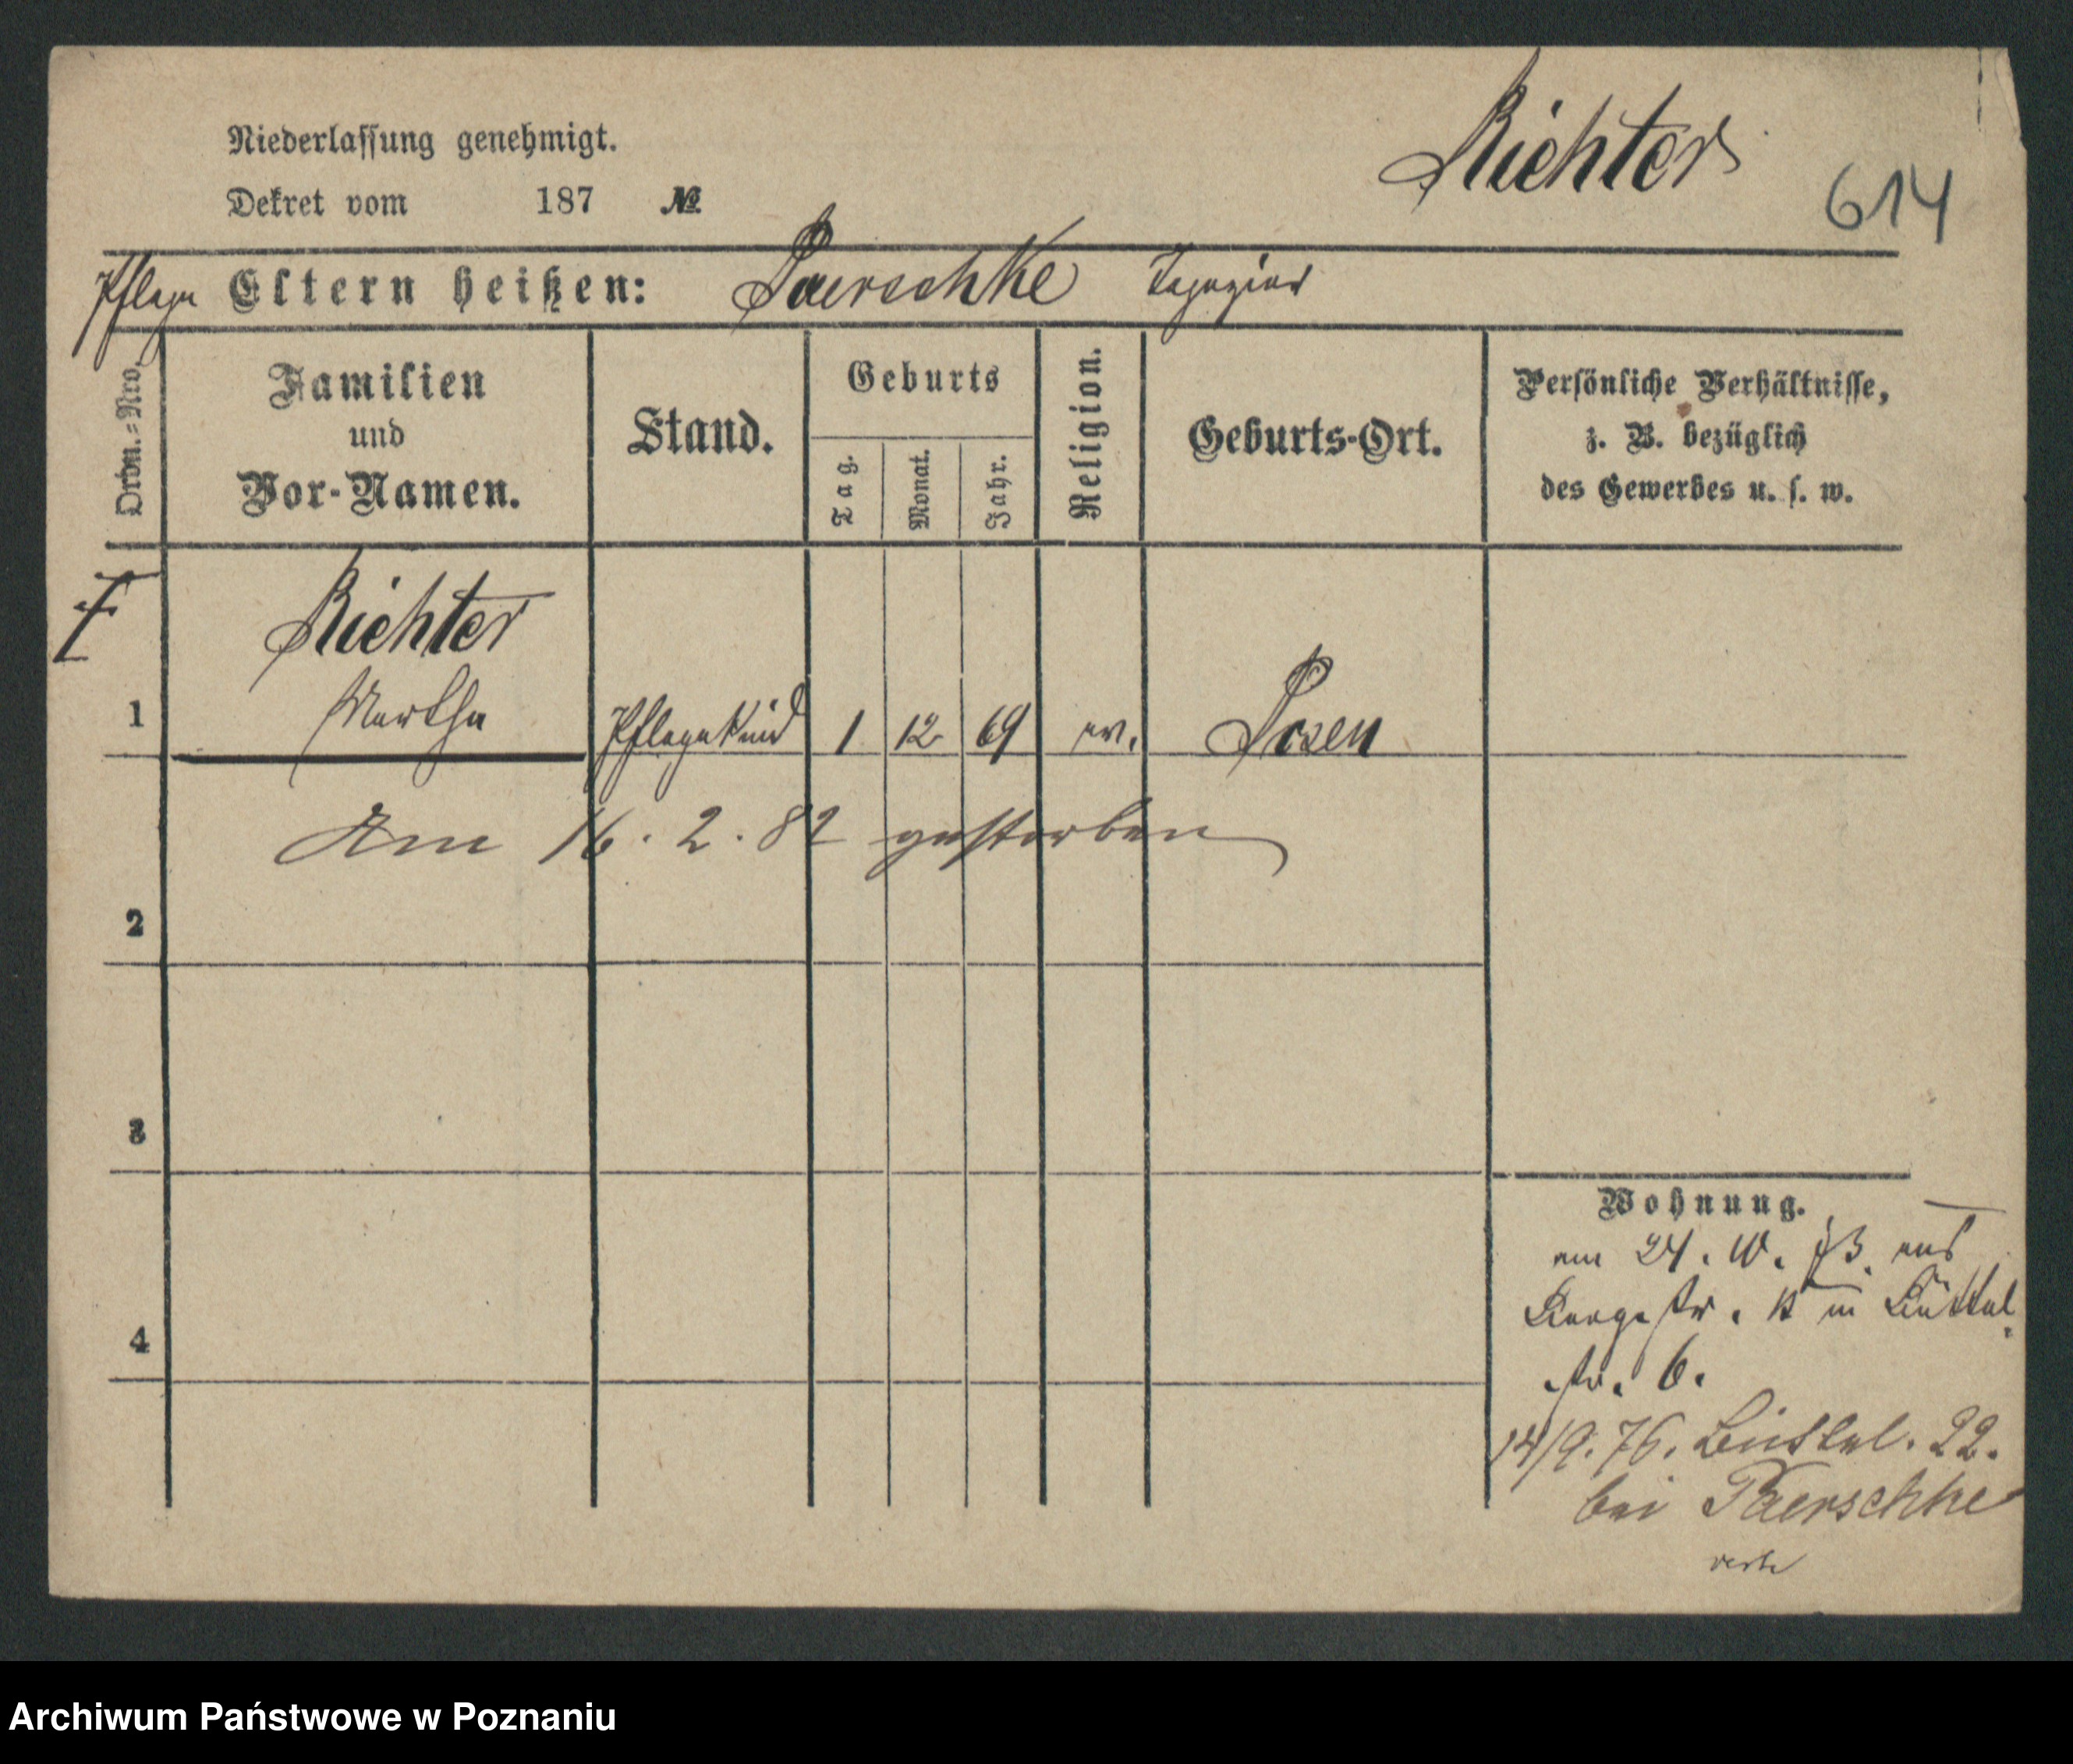 Richter
614
Niederlassung genehmigt.
Dekret vom 187 №
Pflege Eltern heißen: Paerschke Tapezier
Ordn.-Nro.
Familien
und
Vor-Namen.
Stand.
Geburts
Tag.
Monat.
Jahr.
Religion.
Geburts-Ort.
Persönliche Verhältnisse,
z. B. bezüglich
des Gewerbes u. s. w.
Richter
1 Martha Pflegekind 1 12 69 ev. Posen
Am 16. 2. 82 gestorben
2
3
4
Wohnung.
am 24. 10. 73. aus
str. in Büttel
str. 6.
14/9. 76. Büttel. 22.
bei Paerschke
Archiwum Państwowe w Poznaniu